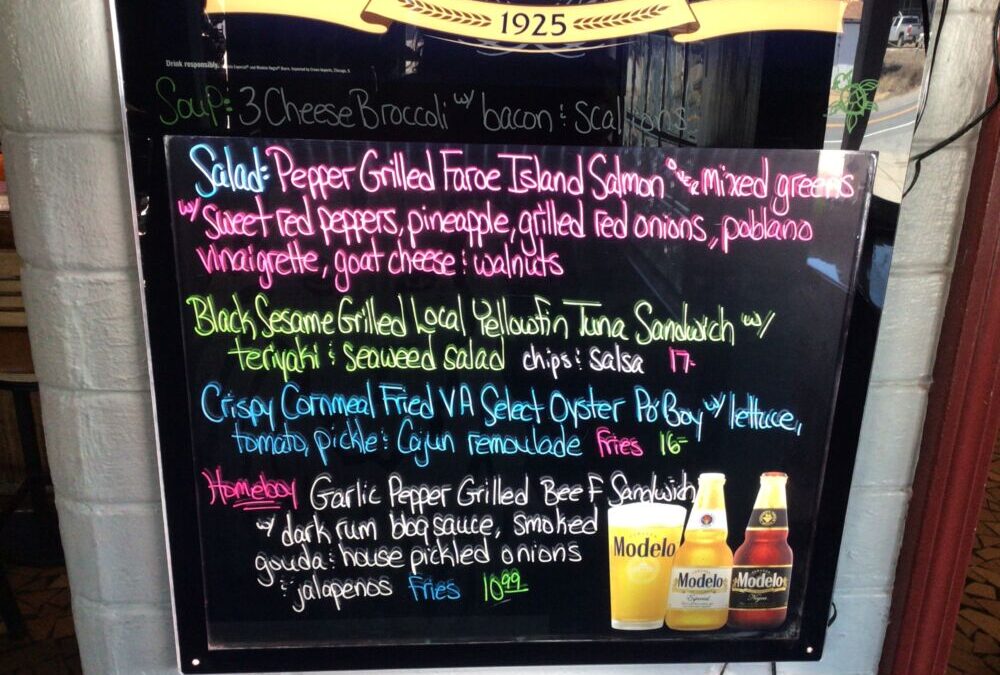 1925
Drink responsibly.
Soup: 3 Cheese Broccoli w/ bacon & scallions
Salad: Pepper Grilled Faroe Island Salmon over mixed greens
w/ sweet red peppers, pineapple, grilled red onions, poblano
vinaigrette, goat cheese & walnuts
Black Sesame Grilled Local Yellowfin Tuna Sandwich w/
teriyaki & seaweed salad chips & salsa 17-
Crispy Cornmeal Fried VA Select Oyster Po' Boy w/ lettuce,
tomato, pickle & Cajun remoulade Fries 16-
Homeboy Garlic Pepper Grilled Beef Sandwich
w/ dark rum bbq sauce, smoked
gouda & house pickled onions
& jalapenos Fries 10.99
Modelo
Modelo
Especial
Modelo
Negra